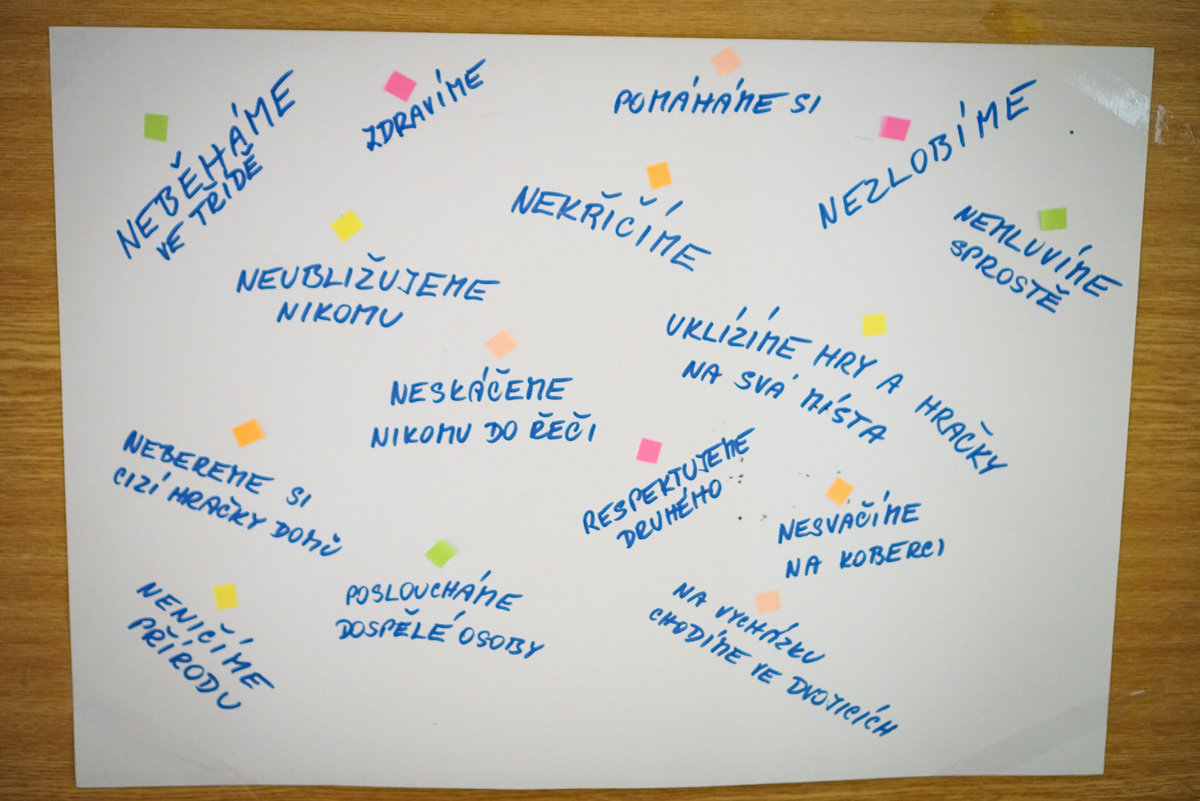 NEBĚHÁME
VE TŘÍDĚ
ZDRAVÍME
POMÁHÁME SI
NEZLOBÍME
NEKŘIČÍME
NEMLUVÍME
SPROSTĚ
NEUBLIŽUJEME
NIKOMU
UKLÍZÍME HRY A HRAČKY
NA SVÁ MÍSTA
NESKÁČEME
NIKOMU DO ŘEČI
NEBEREME SI
CIZÍ HRAČKY DOMŮ
RESPEKTUJEME
DRUHÉHO
NESVAČÍME
NA KOBERCI
NENIČÍME
PŘÍRODU
POSLOUCHÁME
DOSPĚLÉ OSOBY
NA VYCHÁZKU
CHODÍME VE DVOJICÍCH